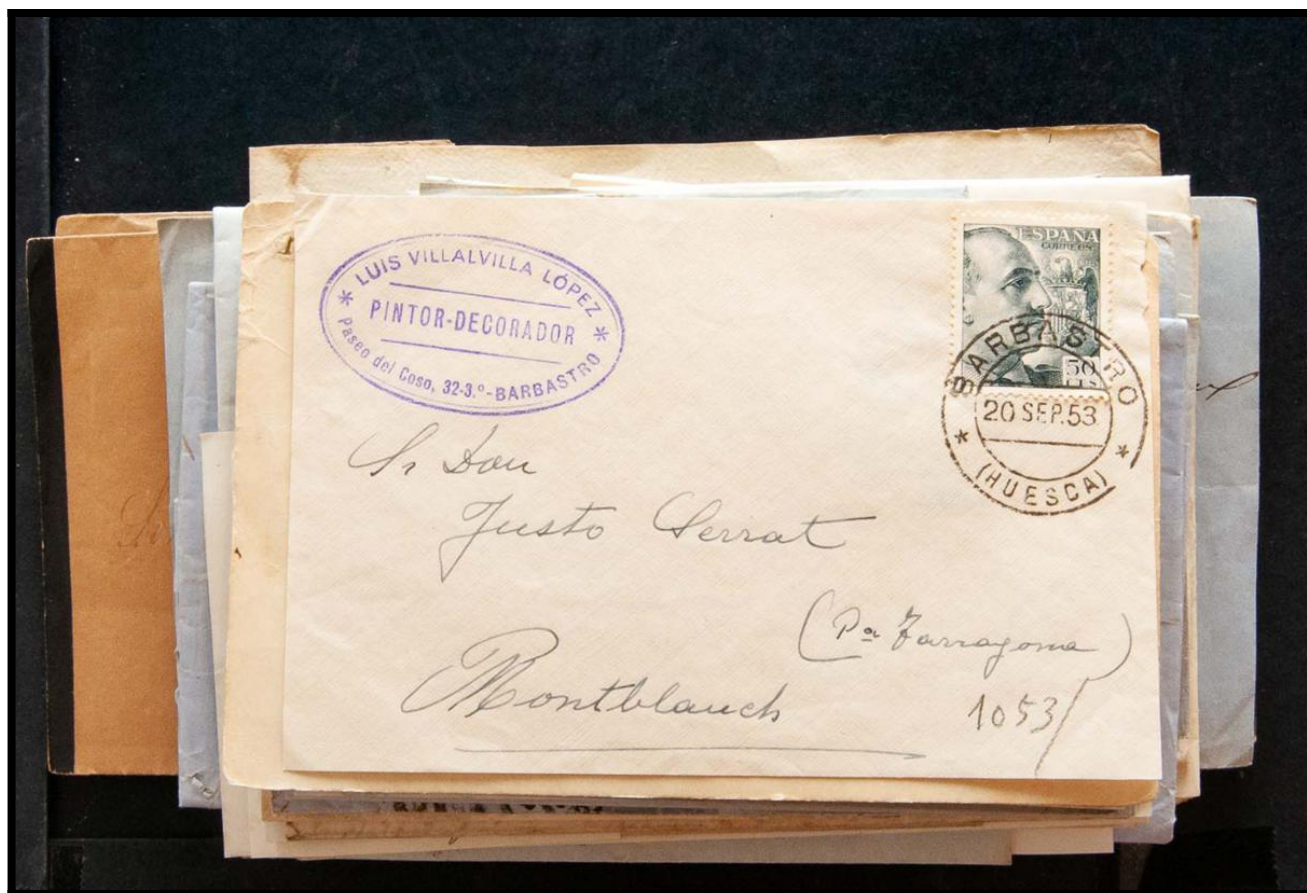 * LUIS VILLALVILLA LÓPEZ *
PINTOR-DECORADOR
Paseo del Coso, 32-3.º-BARBASTRO
ESPAÑA
CORREOS
50
BARBASTRO
20 SEP.53
* (HUESCA) *
Sr Don
Justo Serrat
(Pª Tarragona)
Montblanch
1053